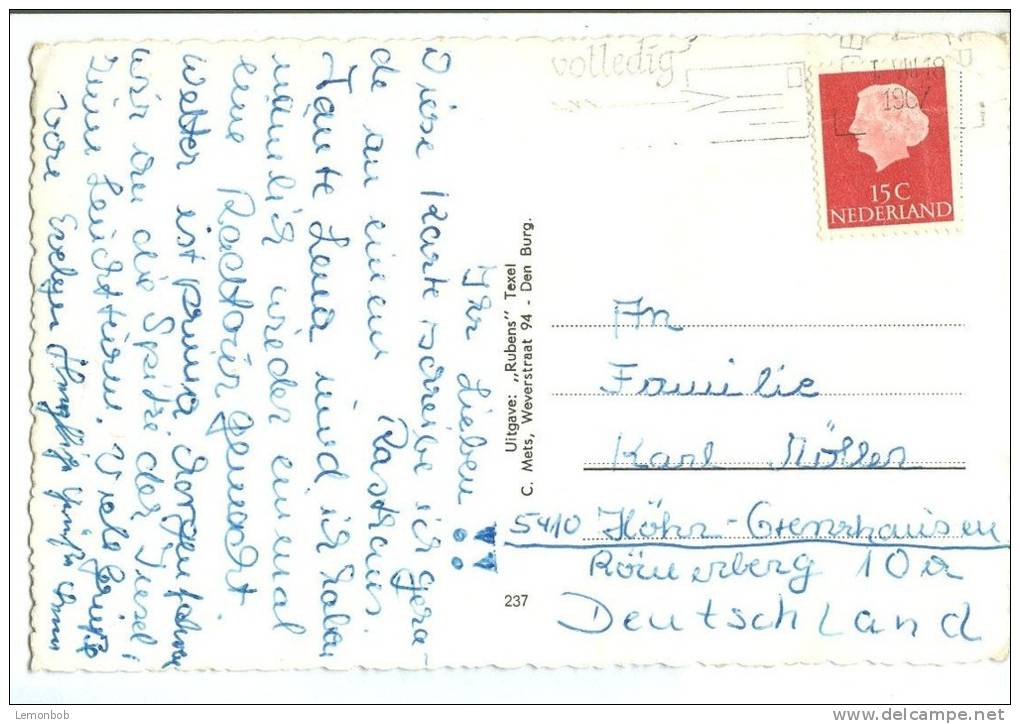 Ihr Lieben!!
Diese Karte schreibe ich gera-
de an einem Rasthaus.
Tante Lena und ich haben
nämlich wieder einmal
eine Radtour gemacht
Wetter ist prima Morgen fahren
wir an die Spitze der Insel
zum Leuchtturm. Viele Grüße
volledig
VIII 18
1967
15 C
NEDERLAND
Uitgave: „Rubens” Texel
C. Mets, Weverstraat 94 - Den Burg.
237
An
Familie
Karl Möller
5410 Höhr-Grenzhausen
Römerberg 10a
Deutschland
Lemonbob